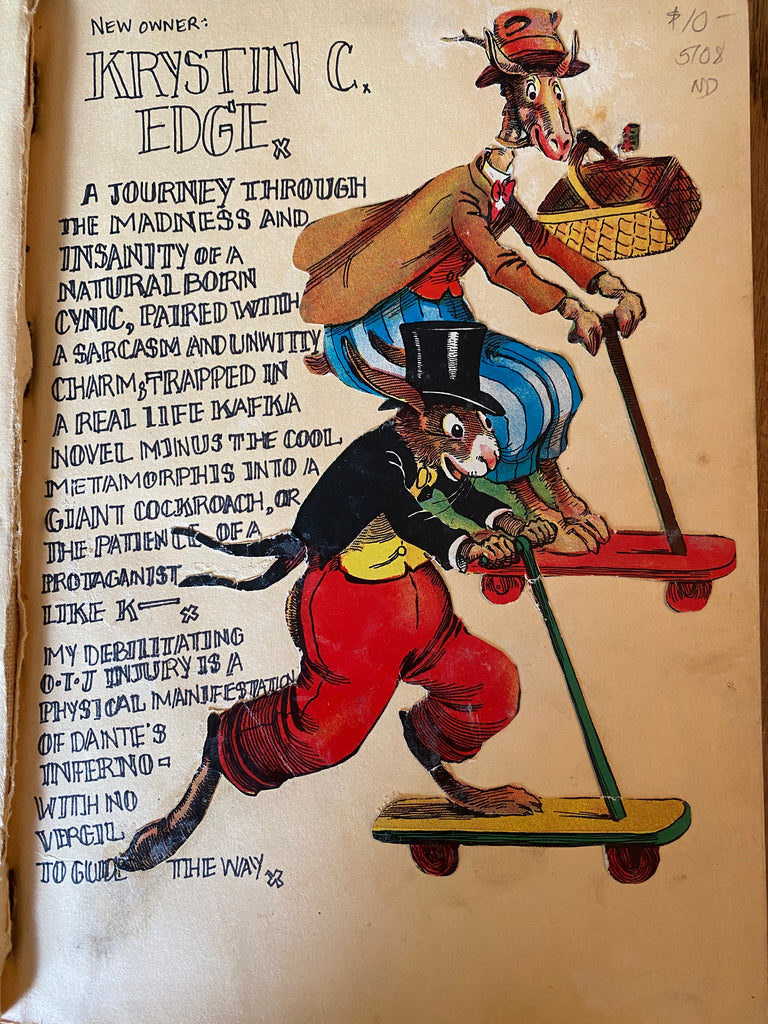 NEW OWNER:
KRYSTIN C.
EDGE.
$10-
5/08
ND
A JOURNEY THROUGH
THE MADNESS AND
INSANITY OF A
NATURAL BORN
CYNIC, PAIRED WITH
A SARCASM AND UNWITTY
CHARM, TRAPPED IN
A REAL LIFE KAFKA
NOVEL MINUS THE COOL
METAMORPHIS INTO A
GIANT COCKROACH, OR
THE PATIENCE OF A
PROTAGANIST
LIKE K—.
MY DEBILITATING
O.T.J INJURY IS A
PHYSICAL MANIFESTATION
OF DANTE'S
INFERNO-
WITH NO
VERGIL
TO GUIDE THE WAY.